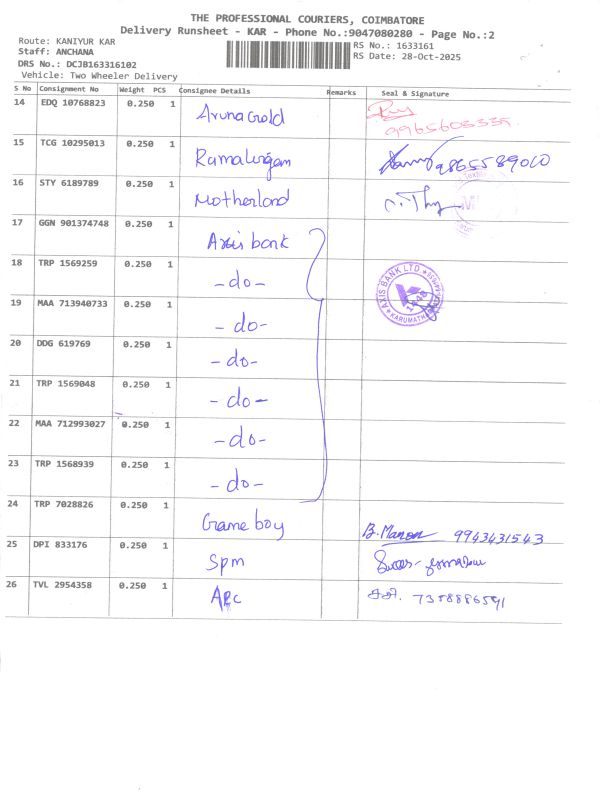 THE PROFESSIONAL COURIERS, COIMBATORE
Delivery Runsheet - KAR - Phone No.:9047080280 - Page No.:2
Route: KANIYUR KAR
Staff: ANCHANA
DRS No.: DCJB163316102
Vehicle: Two Wheeler Delivery
RS No.: 1633161
RS Date: 28-Oct-2025
S No Consignment No Weight PCS Consignee Details Remarks Seal & Signature
14 EDQ 10768823 0.250 1 Aruna Gold
9965605335
15 TCG 10295013 0.250 1 Ramalingam
16 STY 6189789 0.250 1 Motherland
17 GGN 901374748 0.250 1 Axis bank
18 TRP 1569259 0.250 1 -do-
AXIS BANK LTD
19 MAA 713940733 0.250 1 -do-
20 DDG 619769 0.250 1 -do-
21 TRP 1569048 0.250 1 -do-
22 MAA 712993027 0.250 1 -do-
23 TRP 1568939 0.250 1 -do-
24 TRP 7028826 0.250 1 Game boy B. Manon 9943431543
25 DPI 833176 0.250 1 Spm
26 TVL 2954358 0.250 1 APC 7358886591